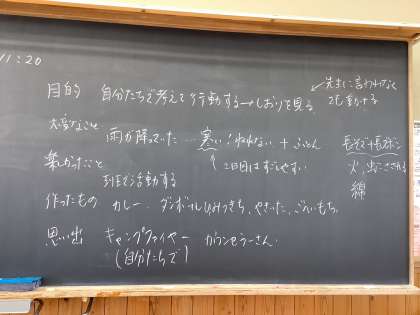 11:20
目的 自分たちで考えて行動する→しおりを見る
←先生に言われなくても動ける
大変なこと 雨が降っていた… 寒い!ねれない + ふとん
↑2日目はすごしやすい
長そで長ズボン
火、虫にさされる
綿
楽しかったこと 班で活動する
作ったもの カレー、ダンボールひみつきち、やきいた、ごへいもち。
思い出 キャンプファイヤー カウンセラーさん。
(自分たちで)